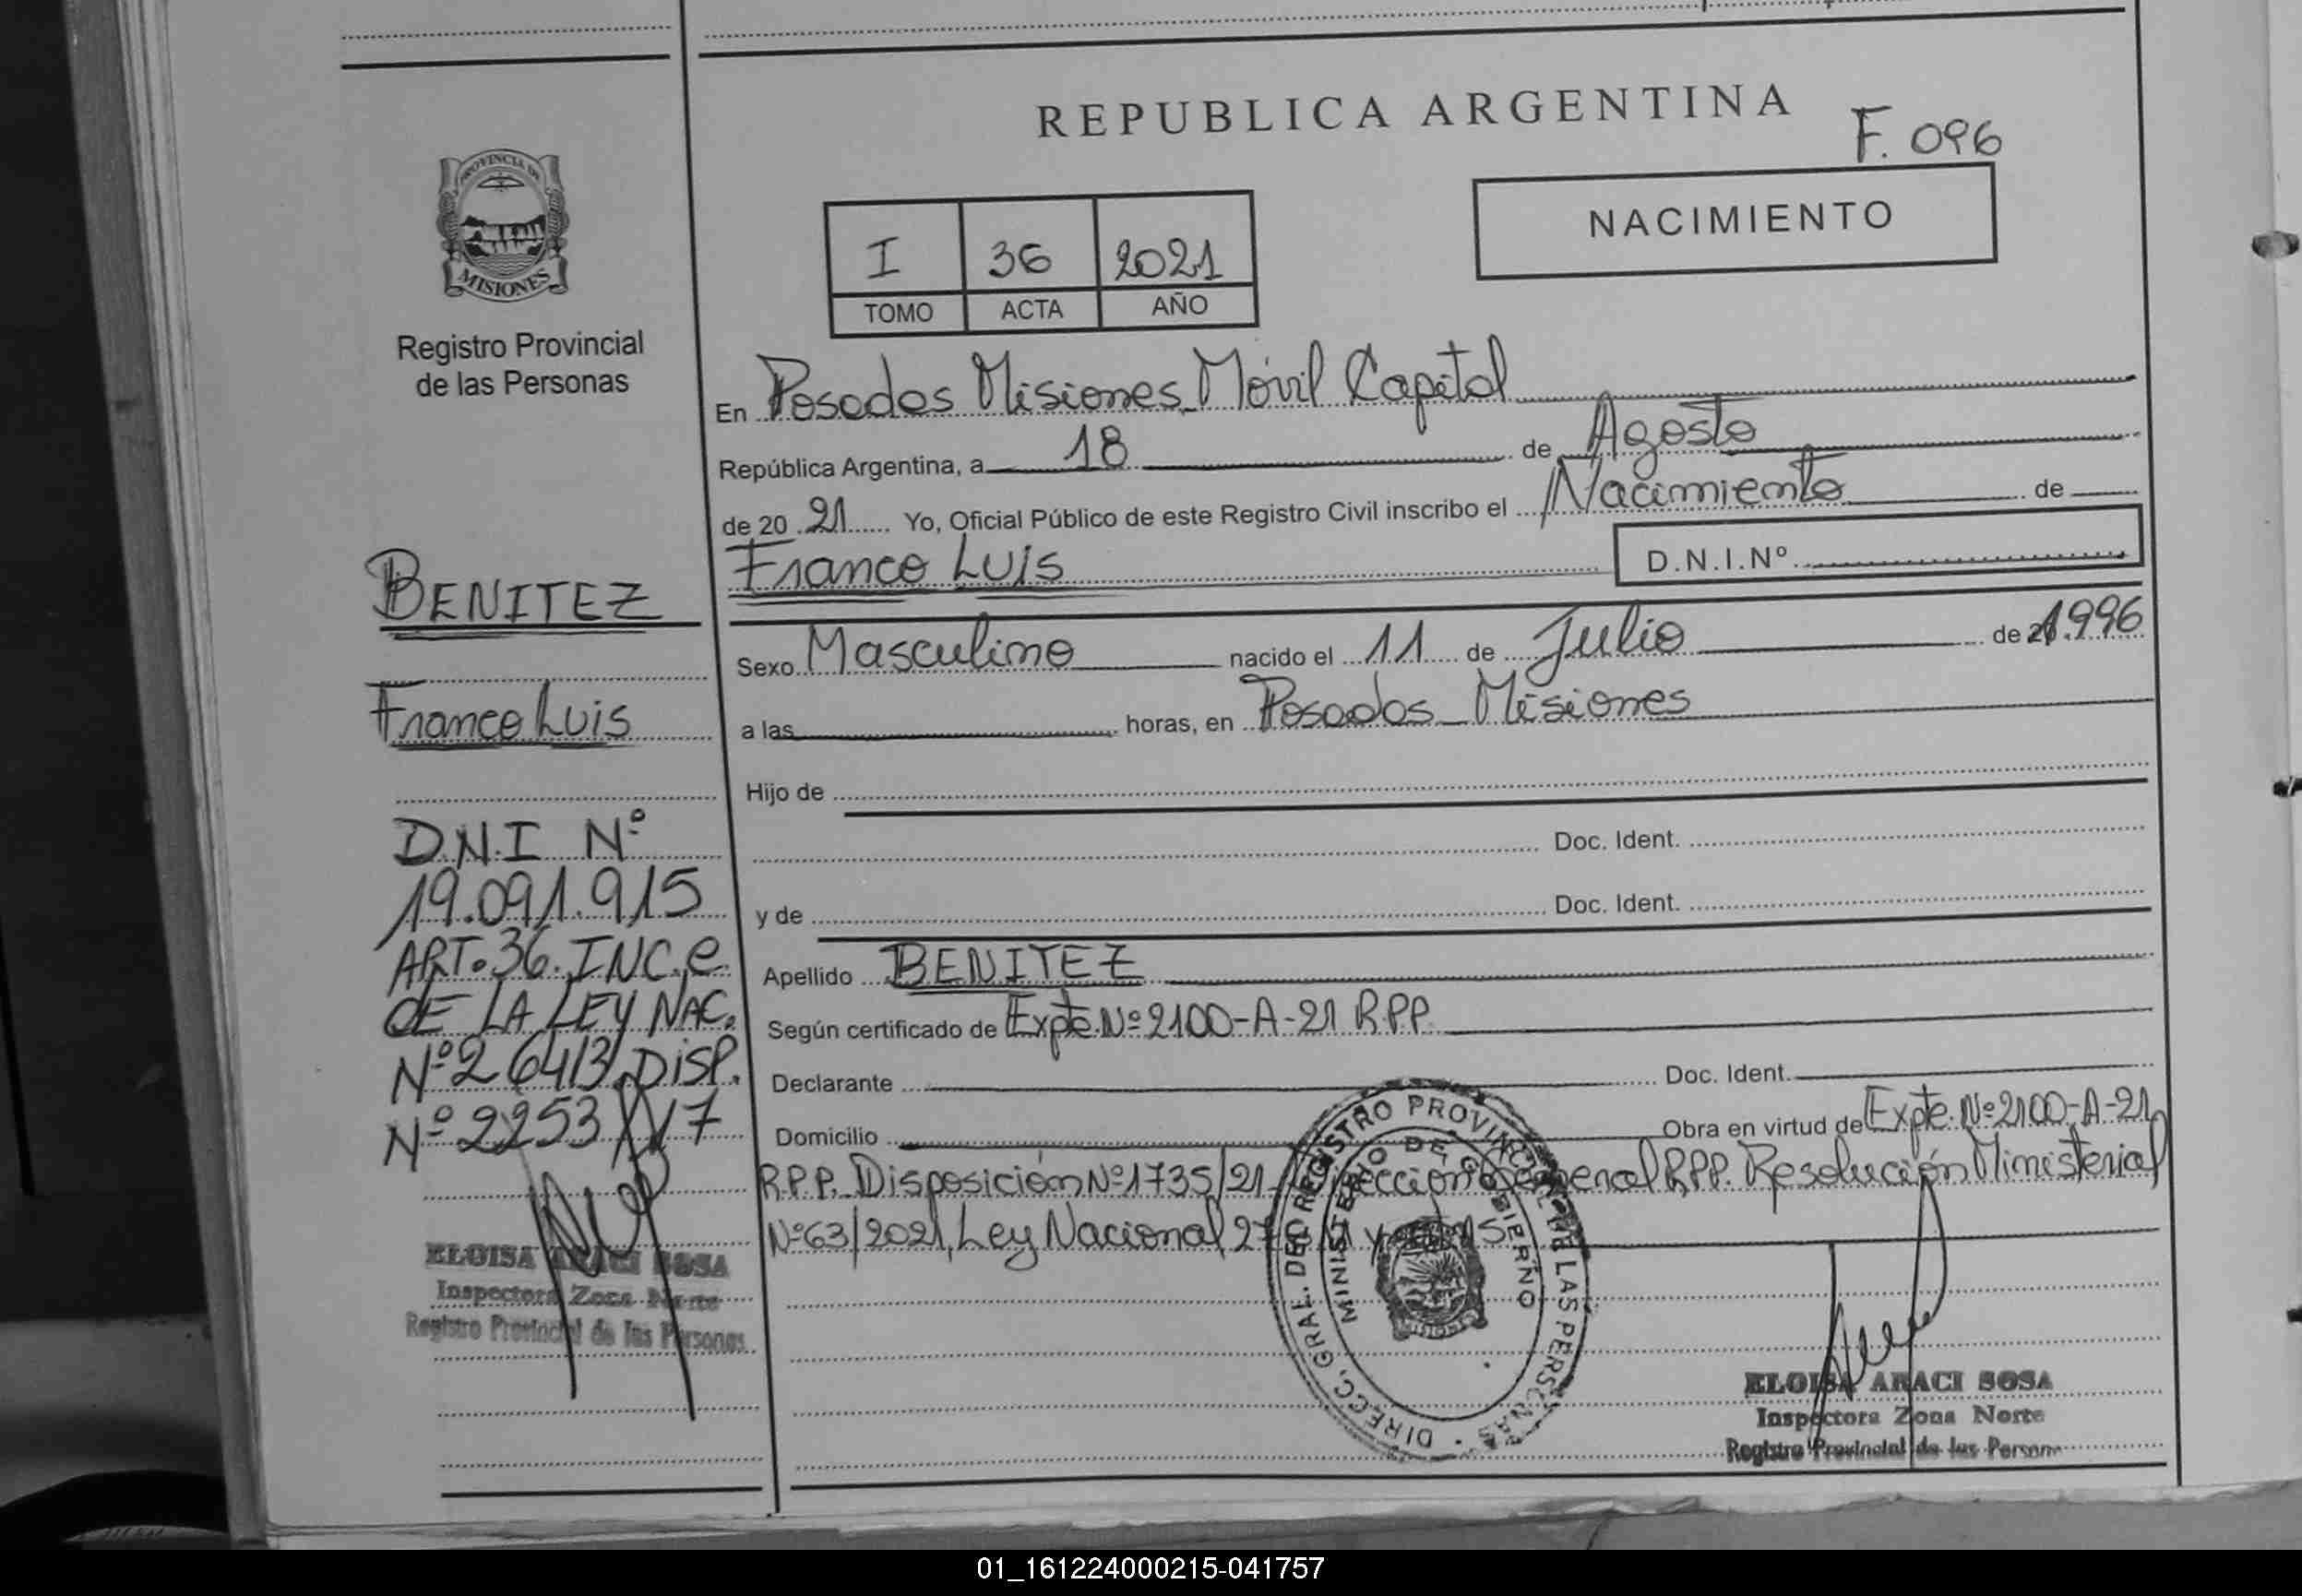 REPUBLICA ARGENTINA
F. 096
PROVINCIA DE
MISIONES
Registro Provincial
de las Personas
I 36 2021
TOMO ACTA AÑO
NACIMIENTO
En Posadas Misiones Móvil Capital
República Argentina, a 18 de Agosto
de 20 21 Yo, Oficial Público de este Registro Civil inscribo el Nacimiento de
Franco Luis D.N.I.Nº
Sexo Masculino nacido el 11 de Julio de 1996
a las horas, en Posadas Misiones
Hijo de
Doc. Ident.
y de Doc. Ident.
Apellido BENITEZ
Según certificado de Expte. Nº 2100-A-21 R.P.P.
Declarante Doc. Ident.
Domicilio Obra en virtud de Expte. Nº 2100-A-21
R.P.P. Disposición Nº 1735/21 Dirección General R.P.P. Resolución Ministerial
Nº 63/2021, Ley Nacional
BENITEZ
Franco Luis
D.N.I Nº
19.091.915
ART. 36. INC. e
DE LA LEY NAC.
Nº 26413, DISP.
Nº 2253/17
ELOISA ARACI SOSA
Inspectora Zona Norte
Registro Provincial de las Personas
DIREC. GRAL. DEL REGISTRO PROVINCIAL DE LAS PERSONAS
MINISTERIO DE GOBIERNO
MISIONES
ELOISA ARACI SOSA
Inspectora Zona Norte
Registro Provincial de las Person
01_161224000215-041757